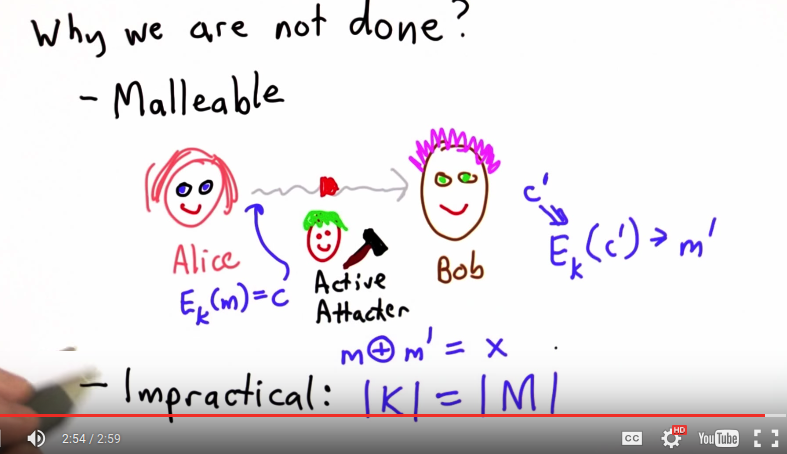 Why we are not done?
- Malleable
c'
E_k(c') → m'
Alice
Bob
E_k(m) = c
Active
Attacker
m ⊕ m' = x
- Impractical: |K| = |M|
2:54 / 2:59
CC
HD
YouTube